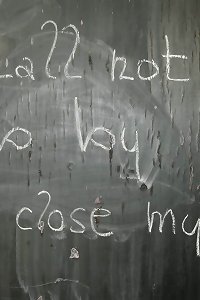 all not
by
close my